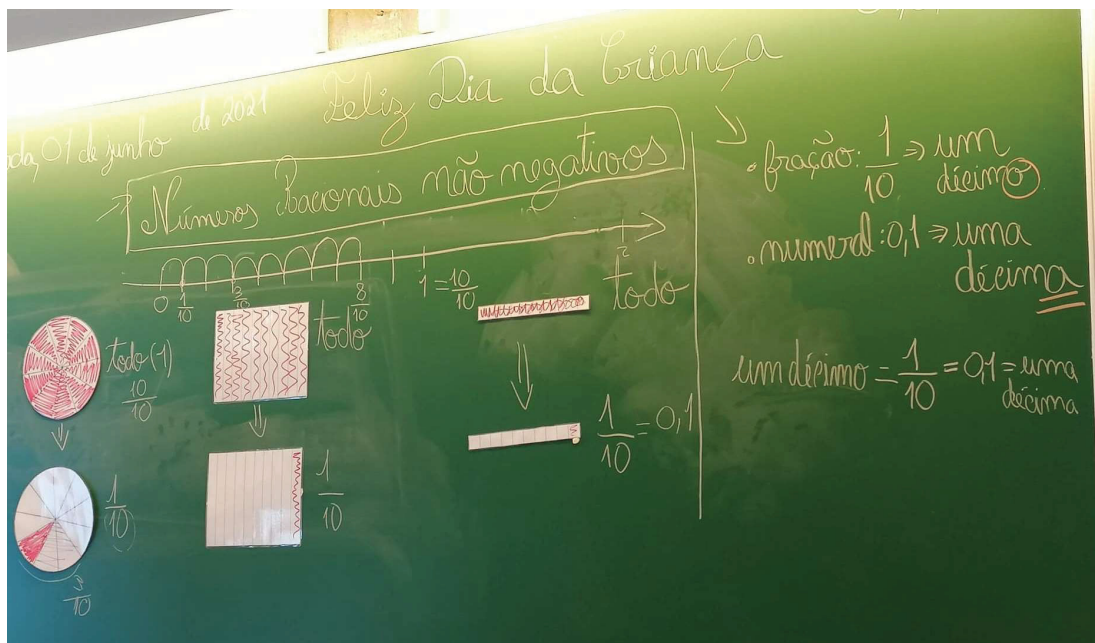 01 de junho de 2021 Feliz Dia da Criança
Números Racionais não negativos
0 1/10 2/10 8/10 1 = 10/10 2
todo (1)
10/10
todo
todo
1/10
2/10
1/10
1/10 = 0,1
. fração: 1/10 ⇒ um
décimo
. numeral: 0,1 ⇒ uma
décima
um décimo = 1/10 = 0,1 = uma
décima